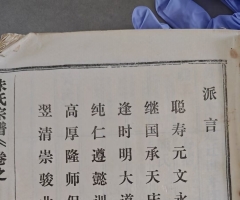 派言
聪寿元文永
继国承天庆
逢时明大道
纯仁遵懿训
高厚隆师保
翌清崇骏
朱氏宗谱《卷之